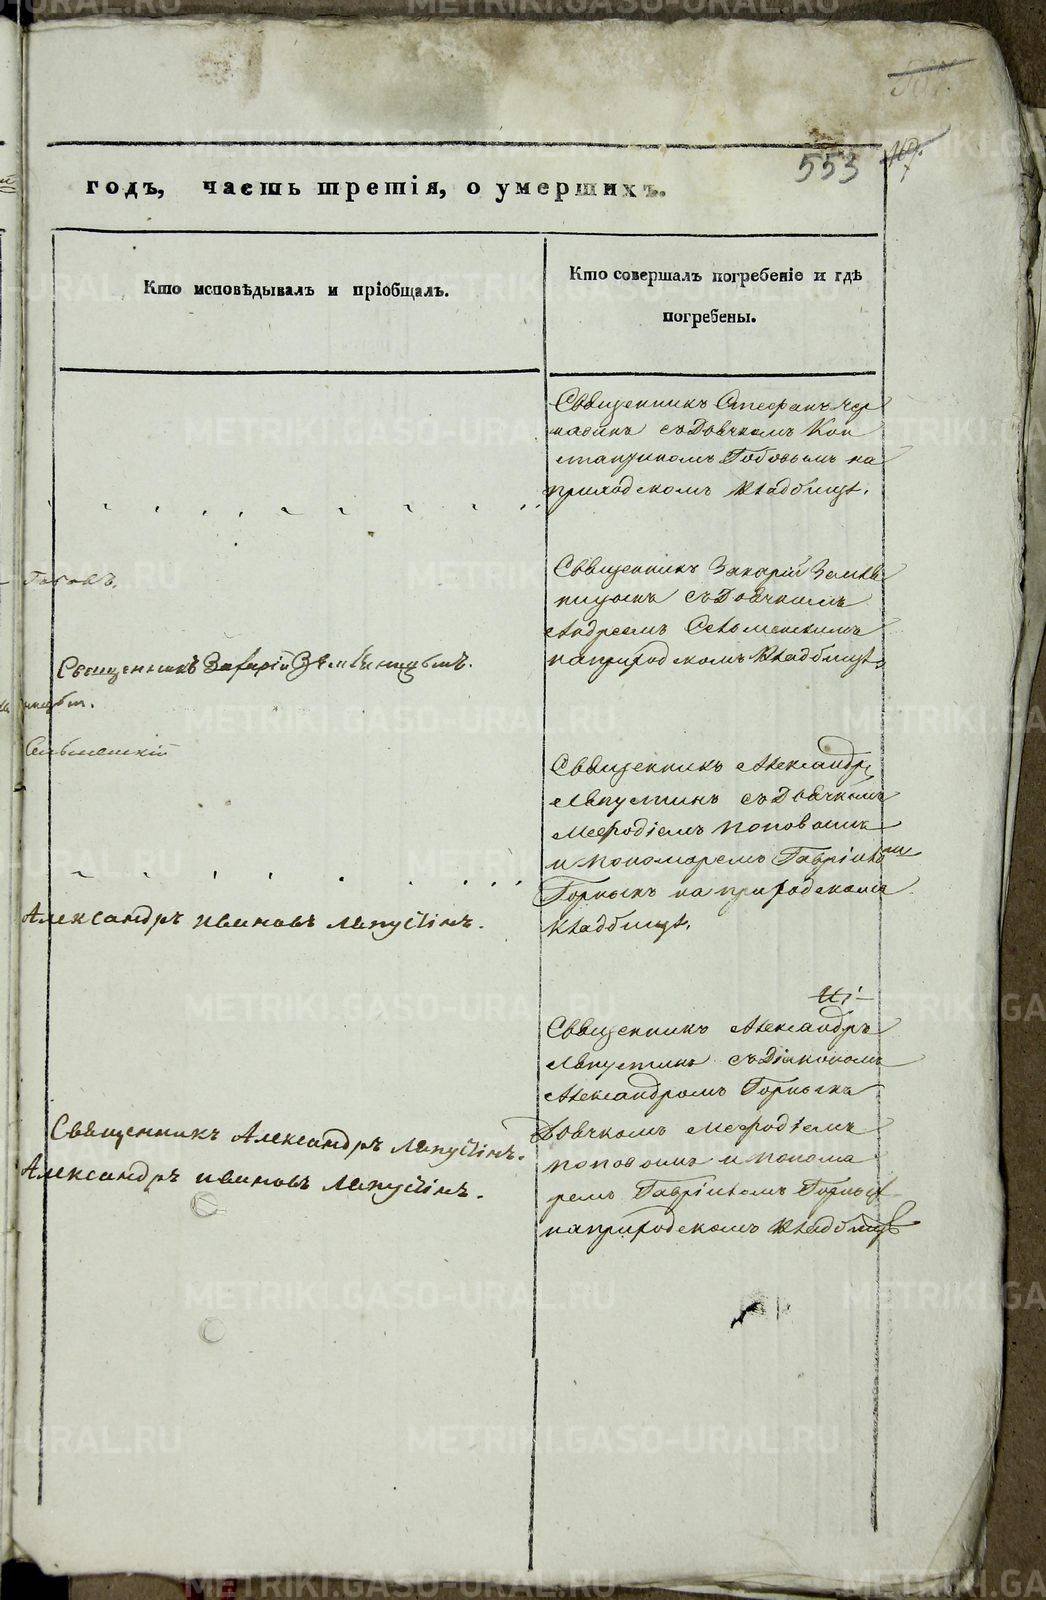 553
годъ, часть третія, о умершихъ.
Кто исповѣдывалъ и пріобщалъ.
Кто совершалъ погребеніе и гдѣ
погребены.
Священникъ Стефанъ Чер
касинъ съ Дьячкомъ Кон
стантиномъ Гобовымъ на
приходскомъ кладбищѣ.
Священникъ Захарій Земля
ницынъ съ Дьячкомъ
Андреемъ Сельменскимъ
на приходскомъ кладбищѣ
Священникъ Захарій Земляницынъ.
Сельменскій
Священникъ Александръ
Лапустинъ съ Дьячкомъ
Меѳодіемъ Поповымъ
и Пономаремъ Гавріиломъ
Горныхъ на приходскомъ
кладбищѣ.
Александръ Ивановъ Лапустинъ.
Священникъ Александръ
Лапустинъ съ Діакономъ
Александромъ Горныхъ
Дьячкомъ Меѳодіемъ
Поповымъ и Понома
ремъ Гавріиломъ Горныхъ
на приходскомъ кладбищѣ
Священникъ Александръ Лапустинъ.
Александръ Ивановъ Лапустинъ.
METRIKI.GASO-URAL.RU